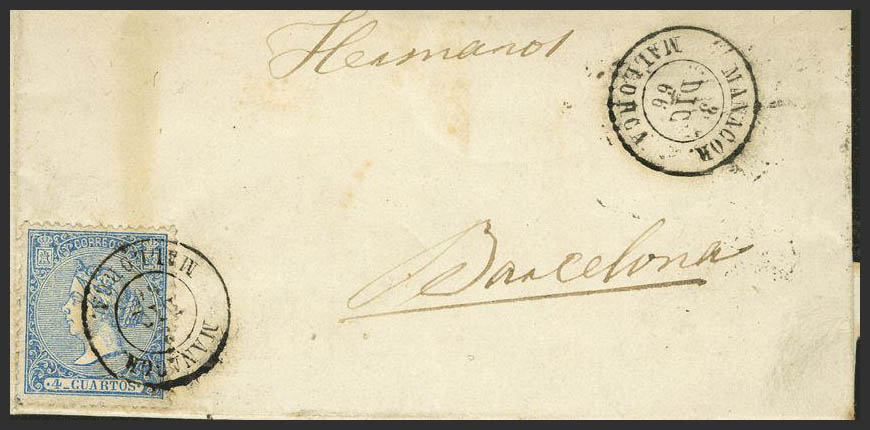 Hermanos
MANACOR.
3
DIC
66
MALLORCA
Barcelona
CORREOS
4_CUARTOS
MANACOR
MALLORCA